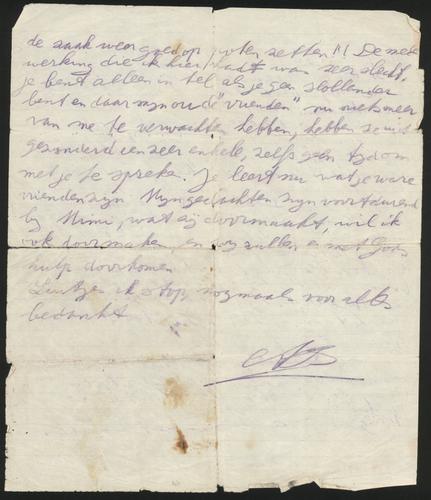 de zaak weer goed op poten zetten!! De mede
werking die ik hier hadt was zeer slecht,
je bent alleen in tel als je geen
bent en daar mijn oude "vrienden" nu niets meer
van me te verwachten hebben, hebben ze uit
gezonderd een zeer enkele, zelfs geen tyd om
met je te spreken. Je leert nu wat je ware
vrienden zyn Myn gedachten zyn voortdurend
by Mimi, wat zy doormaakt, wil ik
ook doormaken, en wy zullen er met Gods
hulp doorkomen
ik stop, nogmaals voor alles
bedankt